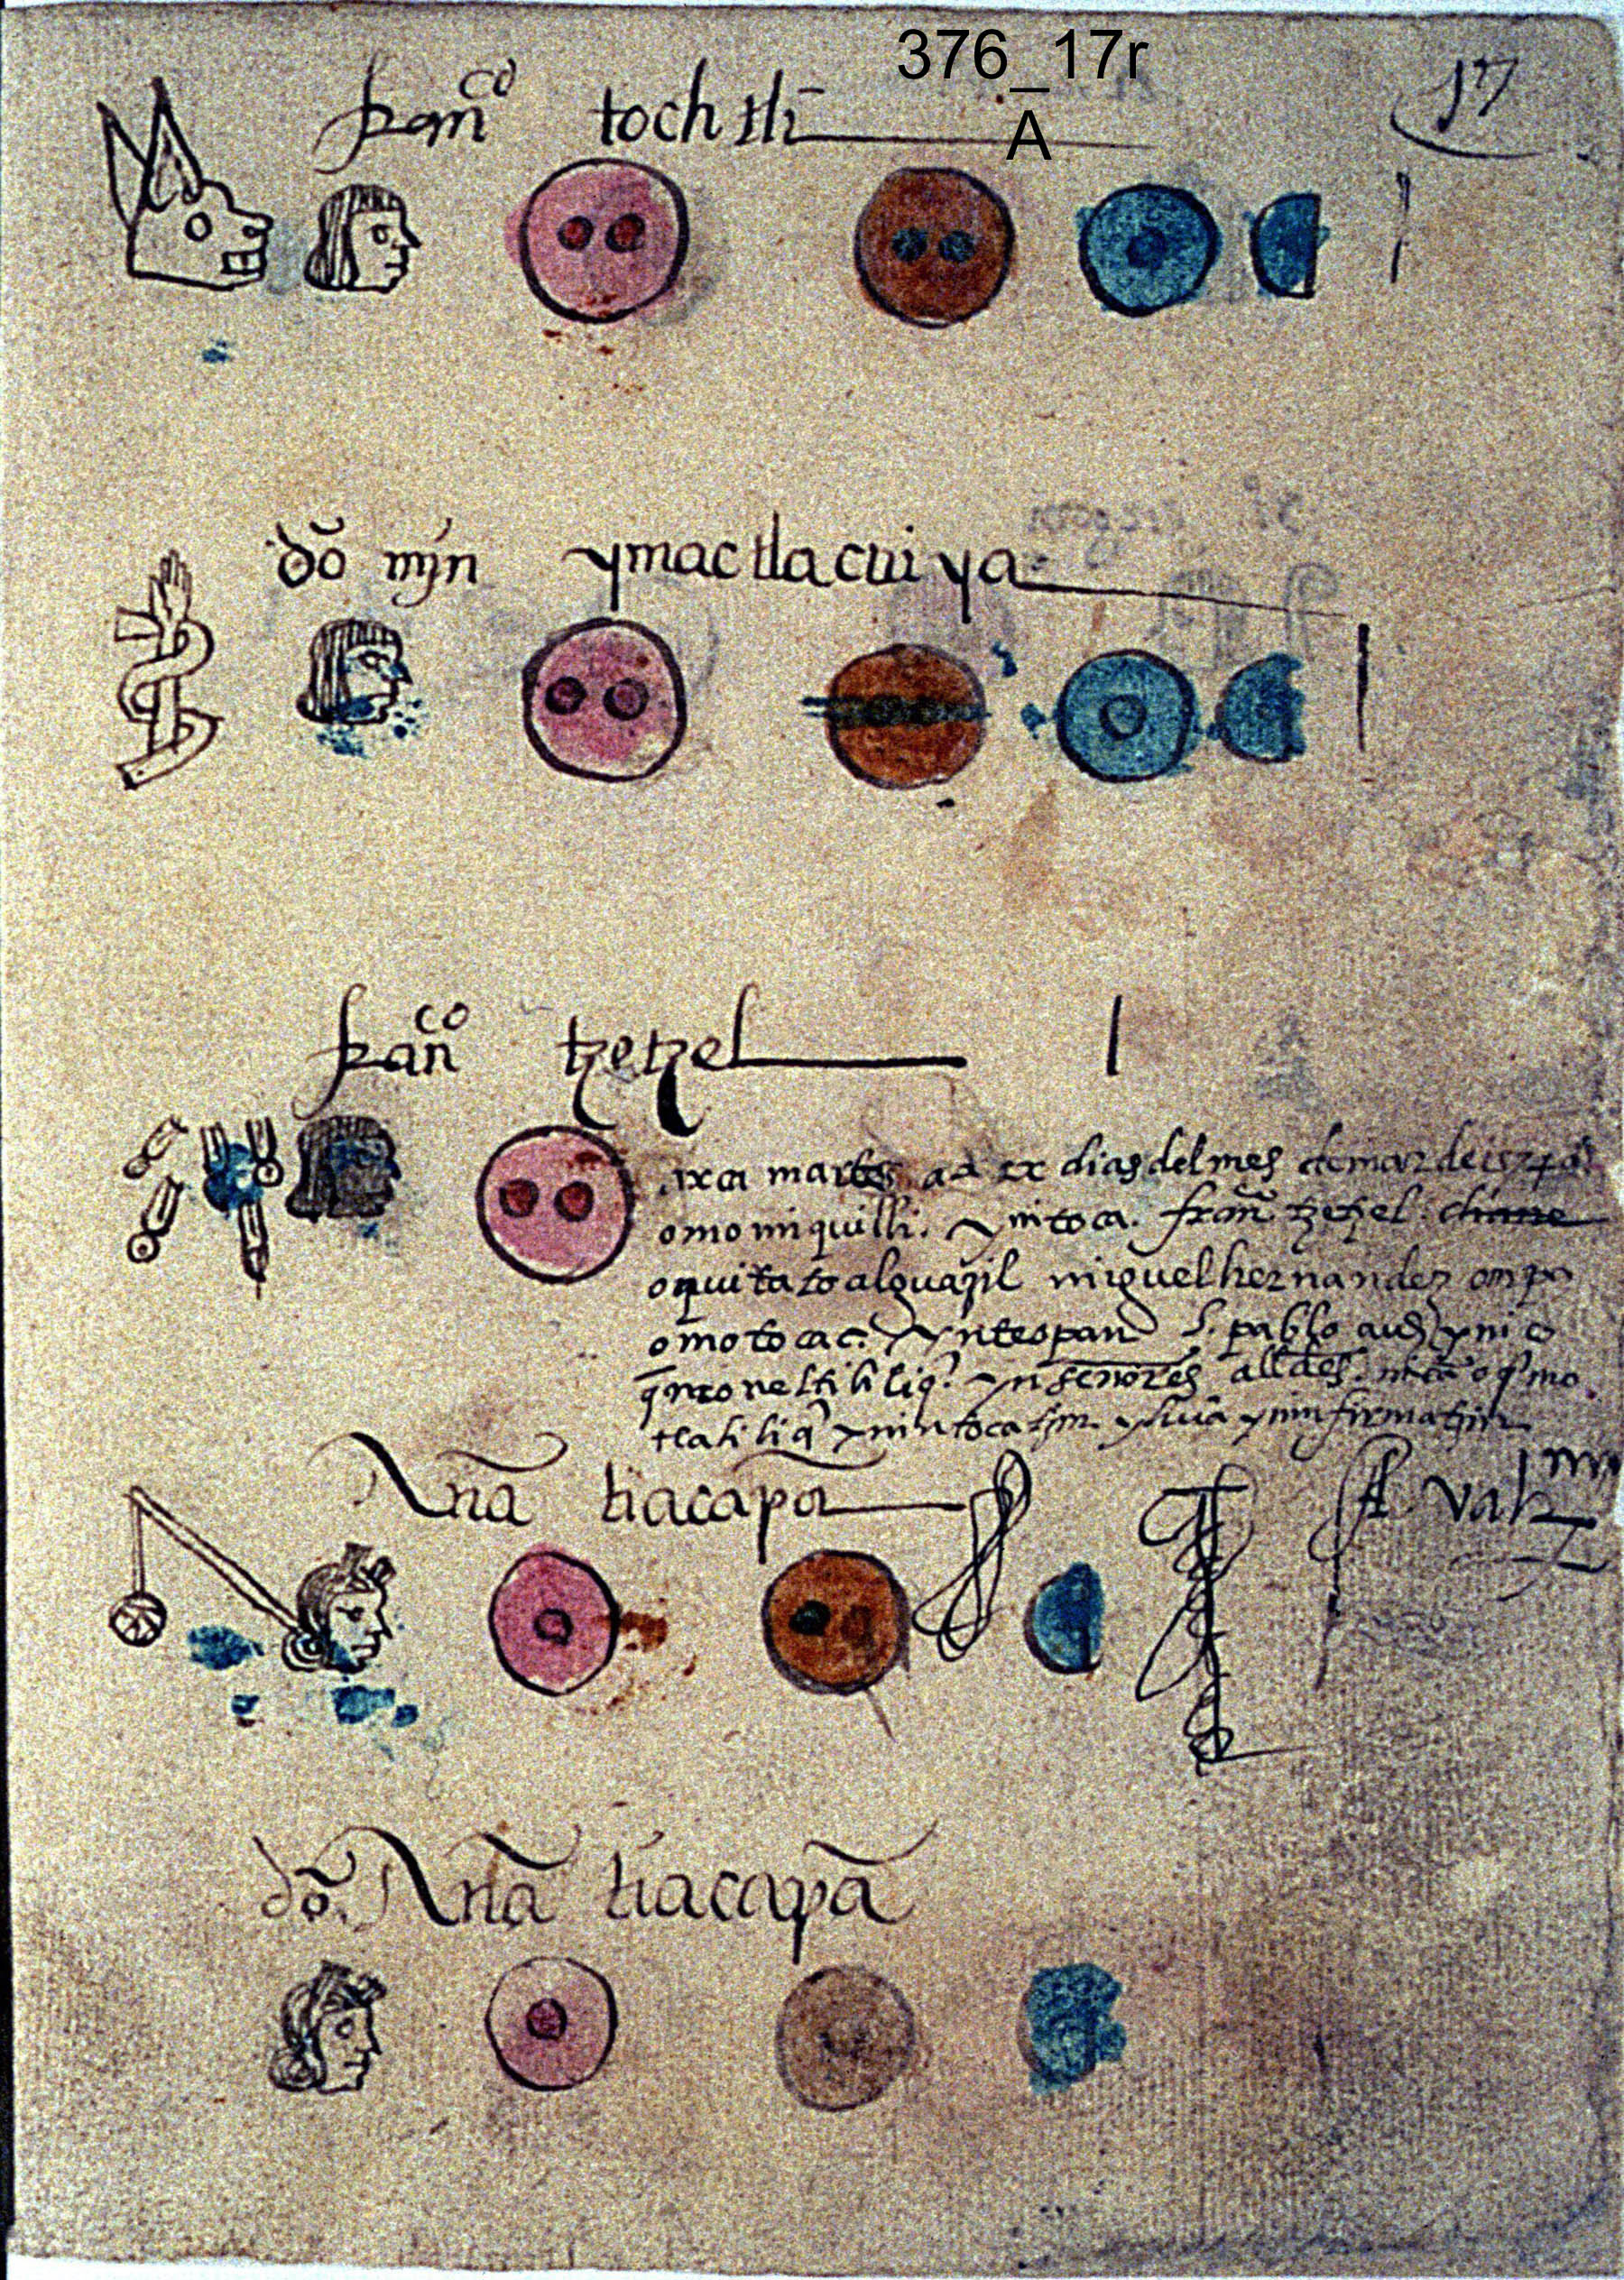 376_17r
A
17
franco tochtli
do min ymactlacuiya
franco tzetzel
axca martes a ix dias del mes de março de 1574 aos
omomiquilli. yn itoca. fran tzetzel. chane
oquitato alguazil miguel hernandez onpa
omotocac. yn teopan S. pablo auh yni o
q̄neltililiq̄ yn señores allдes. nica oq̄mo
tlaliliq̄ yn intocatzin. yhua yn infirmatzin
Ana tiacapā
A valz
dō. Ana tiacapā